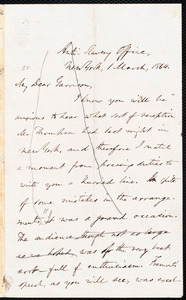 Anti Slavery Office,
New York, 1 March, 1864.
My Dear Garrison,
I know you will be
anxious to hear what sort of reception
Mr Thompson had last night in
New York, and therefore I snatch
a moment from pressing duties to
write you a hurried line. In spite
of some mistakes in the arrange-
ments, it was a grand occasion.
The audience though not so large
as we hoped, was of the very best
sort full of enthusiasm. Fremont's
speech, as you will see, was excel-